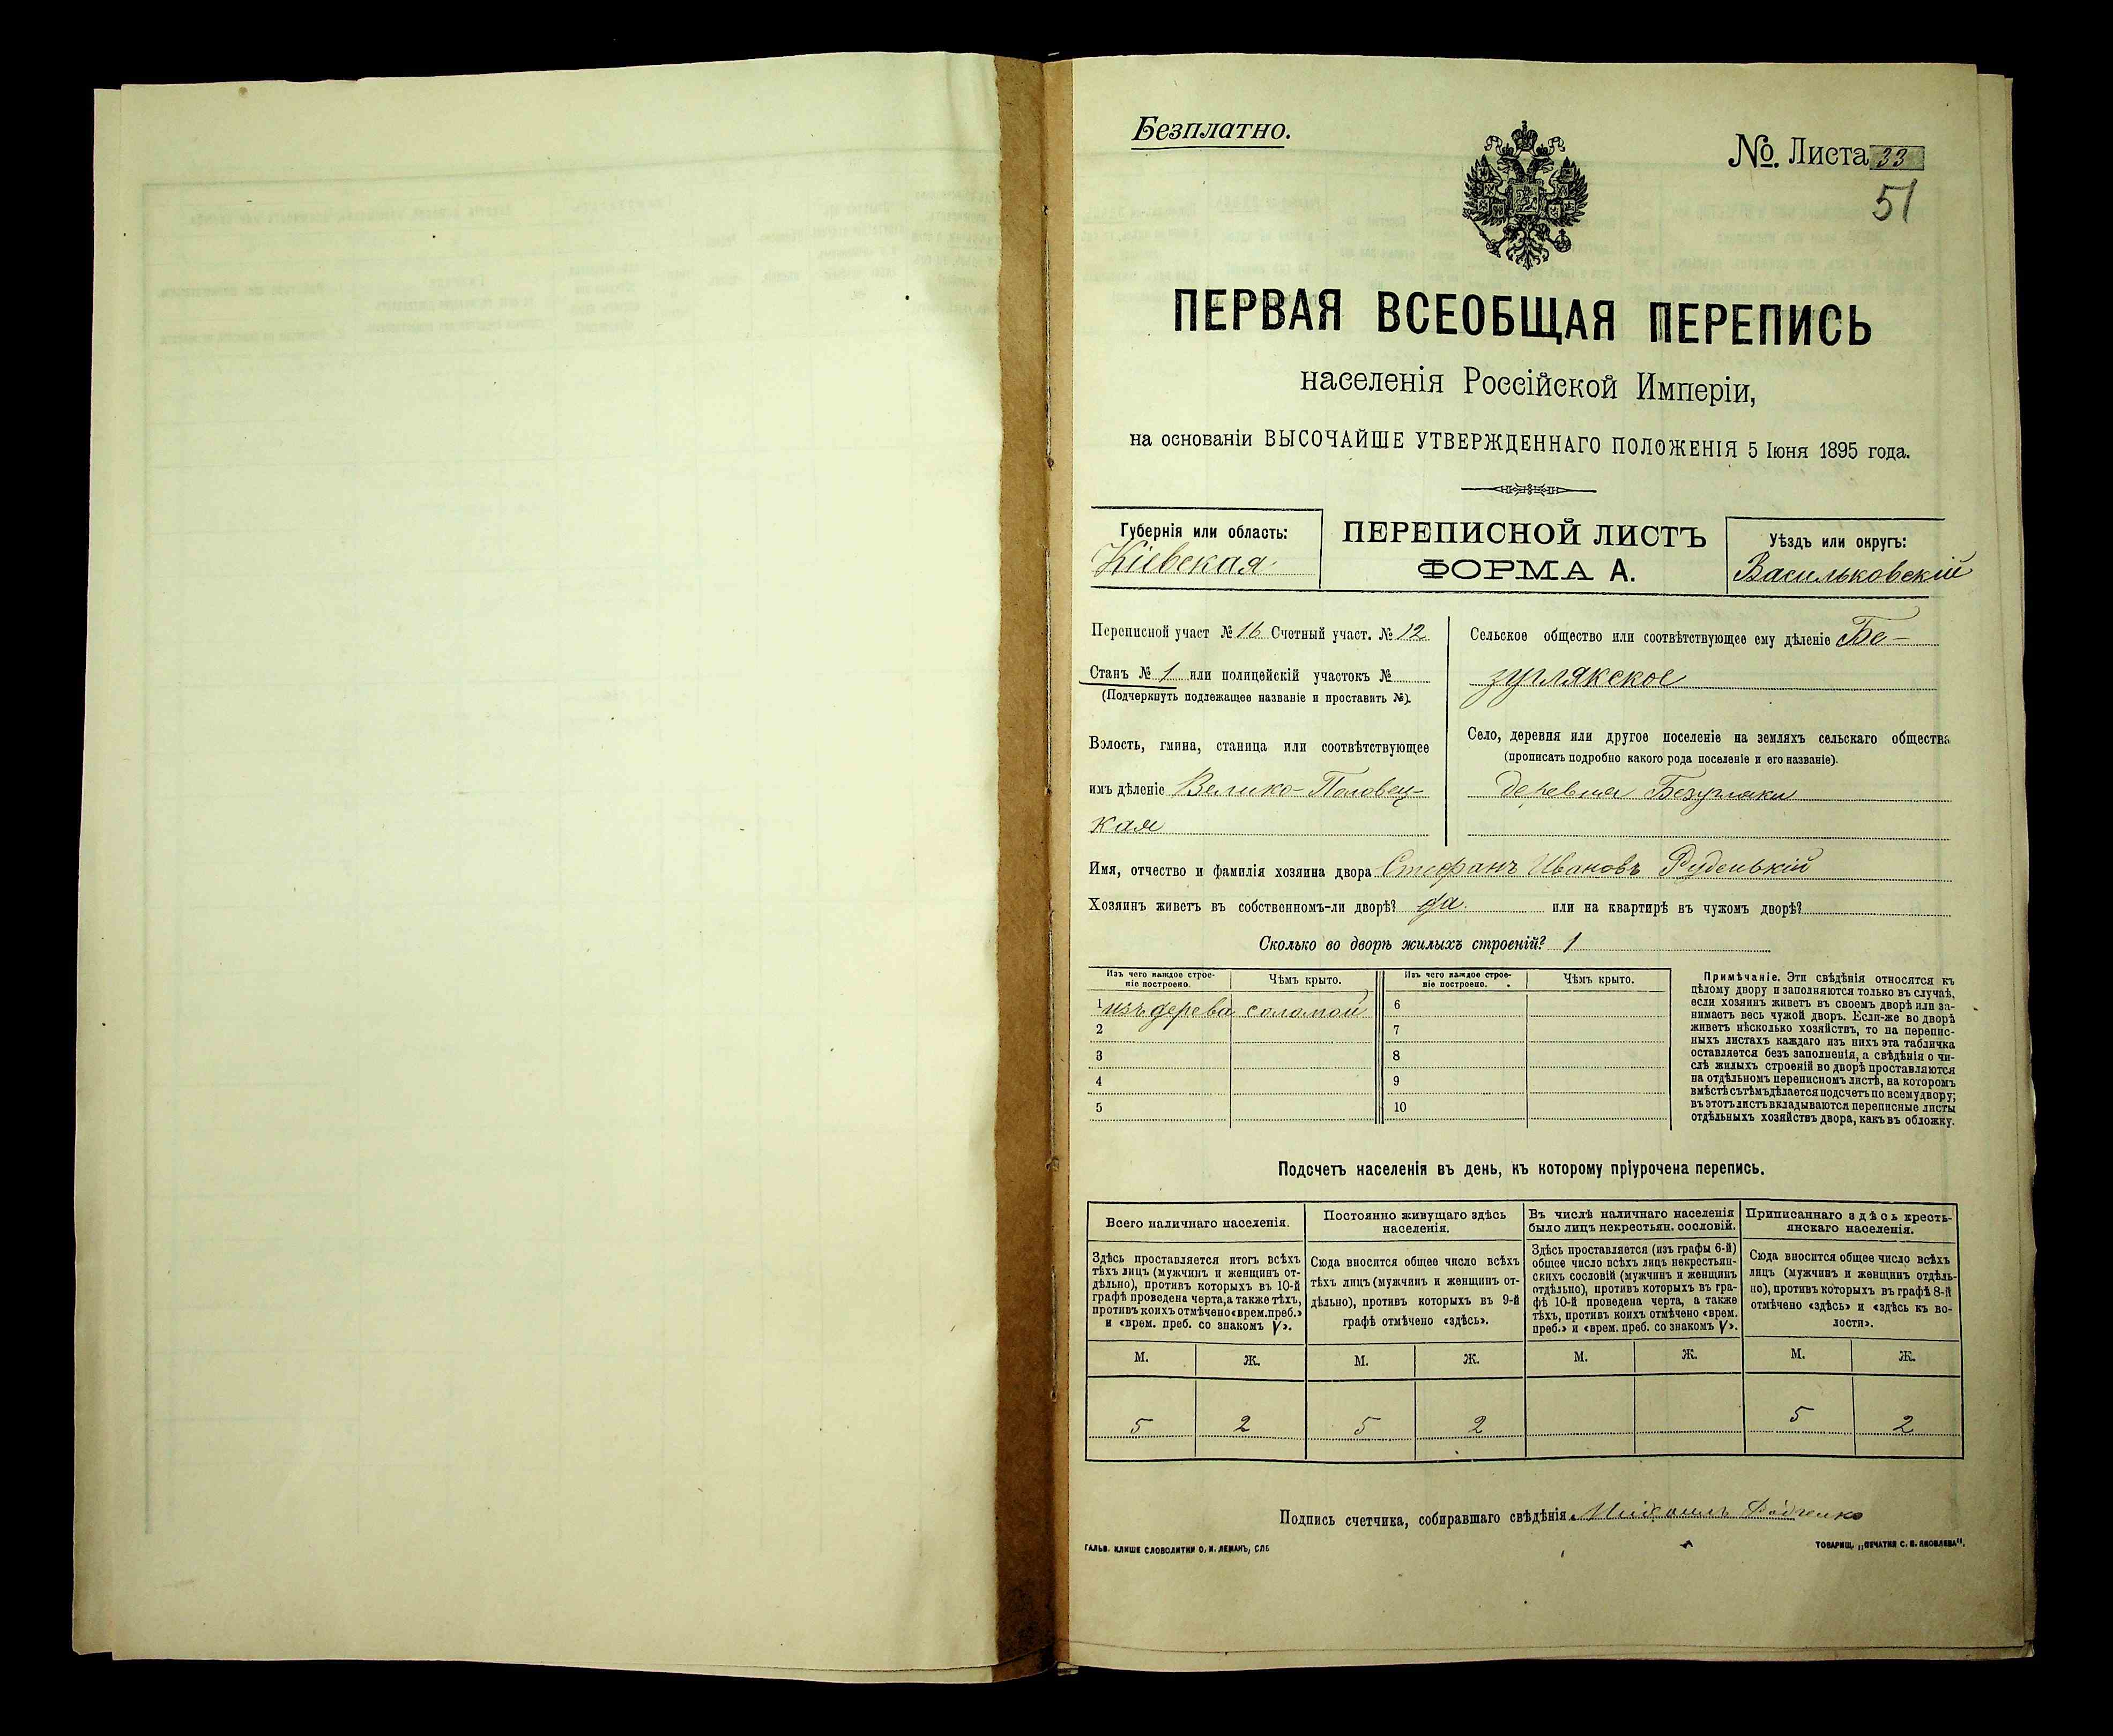 Безплатно.
№. Листа 33
51
ПЕРВАЯ ВСЕОБЩАЯ ПЕРЕПИСЬ
населенія Россійской Имперіи,
на основаніи ВЫСОЧАЙШЕ УТВЕРЖДЕННАГО ПОЛОЖЕНІЯ 5 Іюня 1895 года.
Губернія или область:
Кіевская
ПЕРЕПИСНОЙ ЛИСТЪ
ФОРМА А.
Уѣздъ или округъ:
Васильковскій
Переписной участ № 16 Счетный участ. № 12
Станъ № 1 или полицейскій участокъ №
(Подчеркнуть подлежащее названіе и проставить №).
Волость, гмина, станица или соотвѣтствующее
имъ дѣленіе Велико-Половец-
кая
Сельское общество или соотвѣтствующее ему дѣленіе Бе-
зуглякское
Село, деревня или другое поселеніе на земляхъ сельскаго общества
(прописать подробно какого рода поселеніе и его названіе).
деревня Безугляки
Имя, отчество и фамилія хозяина двора Стефанъ Ивановъ Руденькій
Хозяинъ живетъ въ собственномъ-ли дворѣ? да. или на квартирѣ въ чужомъ дворѣ?
Сколько во дворѣ жилыхъ строеній? 1
Изъ чего каждое строе-
ніе построено.
Чѣмъ крыто.
Изъ чего каждое строе-
ніе построено.
Чѣмъ крыто.
1 изъ дерева соломой 6
2 7
3 8
4 9
5 10
Примѣчаніе. Эти свѣдѣнія относятся къ
цѣлому двору и заполняются только въ случаѣ,
если хозяинъ живетъ въ своемъ дворѣ или за-
нимаетъ весь чужой дворъ. Если-же во дворѣ
живетъ нѣсколько хозяйствъ, то на перепис-
ныхъ листахъ каждаго изъ нихъ эта табличка
оставляется безъ заполненія, а свѣдѣнія о чи-
слѣ жилыхъ строеній во дворѣ проставляются
на отдѣльномъ переписномъ листѣ, на которомъ
вмѣстѣ съ тѣмъ дѣлается подсчетъ по всему двору;
въ этотъ листъ вкладываются переписные листы
отдѣльныхъ хозяйствъ двора, какъ въ обложку.
Подсчетъ населенія въ день, къ которому пріурочена перепись.
Всего наличнаго населенія.
Здѣсь проставляется итогъ всѣхъ
тѣхъ лицъ (мужчинъ и женщинъ от-
дѣльно), противъ которыхъ въ 10-й
графѣ проведена черта, а также тѣхъ,
противъ коихъ отмѣчено «врем. преб.»
и «врем. преб. со знакомъ V».
Постоянно живущаго здѣсь
населенія.
Сюда вносится общее число всѣхъ
тѣхъ лицъ (мужчинъ и женщинъ от-
дѣльно), противъ которыхъ въ 9-й
графѣ отмѣчено «здѣсь».
Въ числѣ наличнаго населенія
было лицъ некрестьян. сословій.
Здѣсь проставляется (изъ графы 6-й)
общее число всѣхъ лицъ некрестьян-
скихъ сословій (мужчинъ и женщинъ
отдѣльно), противъ которыхъ въ гра-
фѣ 10-й проведена черта, а также
тѣхъ, противъ коихъ отмѣчено «врем.
преб.» и «врем. преб. со знакомъ V».
Приписаннаго здѣсь кресть-
янскаго населенія.
Сюда вносится общее число всѣхъ
лицъ (мужчинъ и женщинъ отдѣль-
но), противъ которыхъ въ графѣ 8-й
отмѣчено «здѣсь» и «здѣсь къ во-
лости».
М. Ж. М. Ж. М. Ж. М. Ж.
5 2 5 2 5 2
Подпись счетчика, собиравшаго свѣдѣнія. Михаилъ
ГАЛЬВ. КЛИШЕ СЛОВОЛИТНИ О. И. ЛЕМАНЪ, СПБ
ТОВАРИЩ. „ПЕЧАТНЯ С. П. ЯКОВЛЕВА".